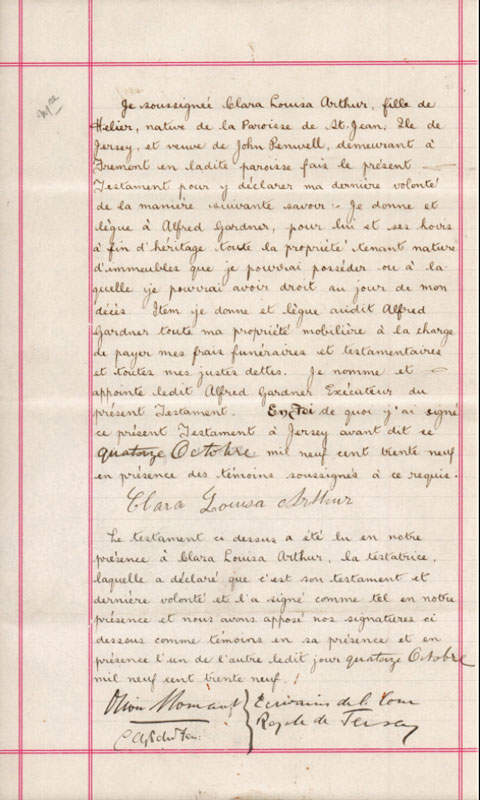 Je soussignée Clara Louisa Arthur, fille de
Helier, native de la Paroisse de St. Jean, Ile de
Jersey, et veuve de John Penwell, demeurant à
Fremont en ladite paroisse fais le présent
Testament pour y déclarer ma dernière volonté
de la manière suivante savoir:- Je donne et
lègue à Alfred Gardner, pour lui et ses hoirs
à fin d'héritage toute la propriété tenant nature
d'immeubles que je pourrai posséder ou à la
quelle je pourrai avoir droit au jour de mon
décès. Item je donne et lègue audit Alfred
Gardner toute ma propriété mobilière à la charge
de payer mes frais funéraires et testamentaires
et toutes mes justes dettes. Je nomme et
appointe ledit Alfred Gardner Exécuteur du
présent Testament. En Foi de quoi j'ai signé
ce présent Testament à Jersey avant dit ce
quatorze Octobre mil neuf cent trente neuf
en présence des témoins soussignés à ce requis.
Clara Louisa Arthur
Le testament ci dessus a été lu en notre
présence à Clara Louisa Arthur, la testatrice,
laquelle a déclaré que c'est son testament et
dernière volonté et l'a signé comme tel en notre
présence et nous avons apposé nos signatures ci
dessous comme témoins en sa présence et en
présence l'un de l'autre ledit jour quatorze Octobre
mil neuf cent trente neuf.
Ecrivains de la Cour
Royale de Jersey